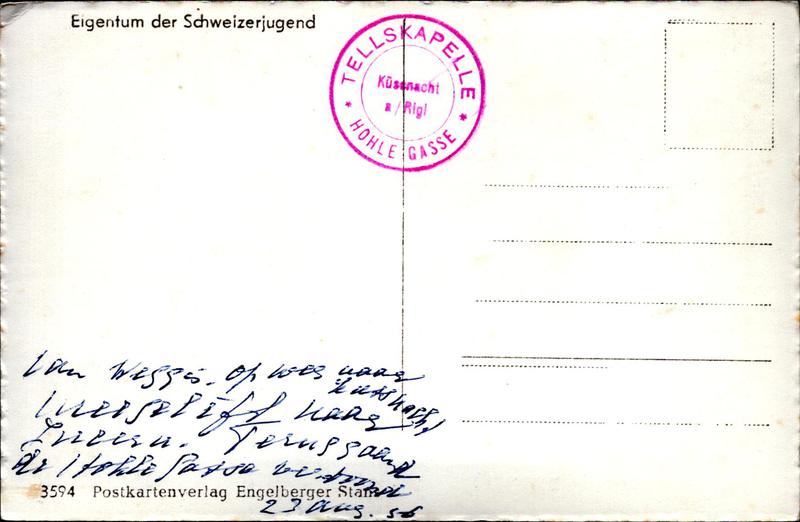 Eigentum der Schweizerjugend
TELLSKAPELLE
Küssnacht
a/Rigi
* HOHLE GASSE *
Van Weggis. op weg naar
Kussnacht
meegelift naar
Luzern. Teruggaand
de Hohle Gasse
3594 Postkartenverlag Engelberger Stans
23 Aug. 56